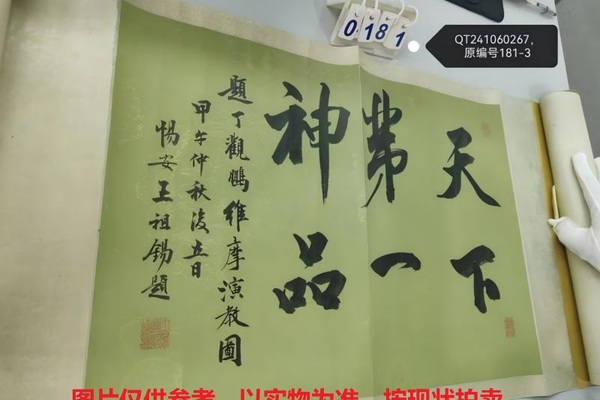 天下
第一
神品
題丁觀鵬維摩演教圖
甲午仲秋後五日
惕安王祖錫題
0181
QT241060267,
原编号181-3
图片仅供参考，以实物为准，按现状拍卖